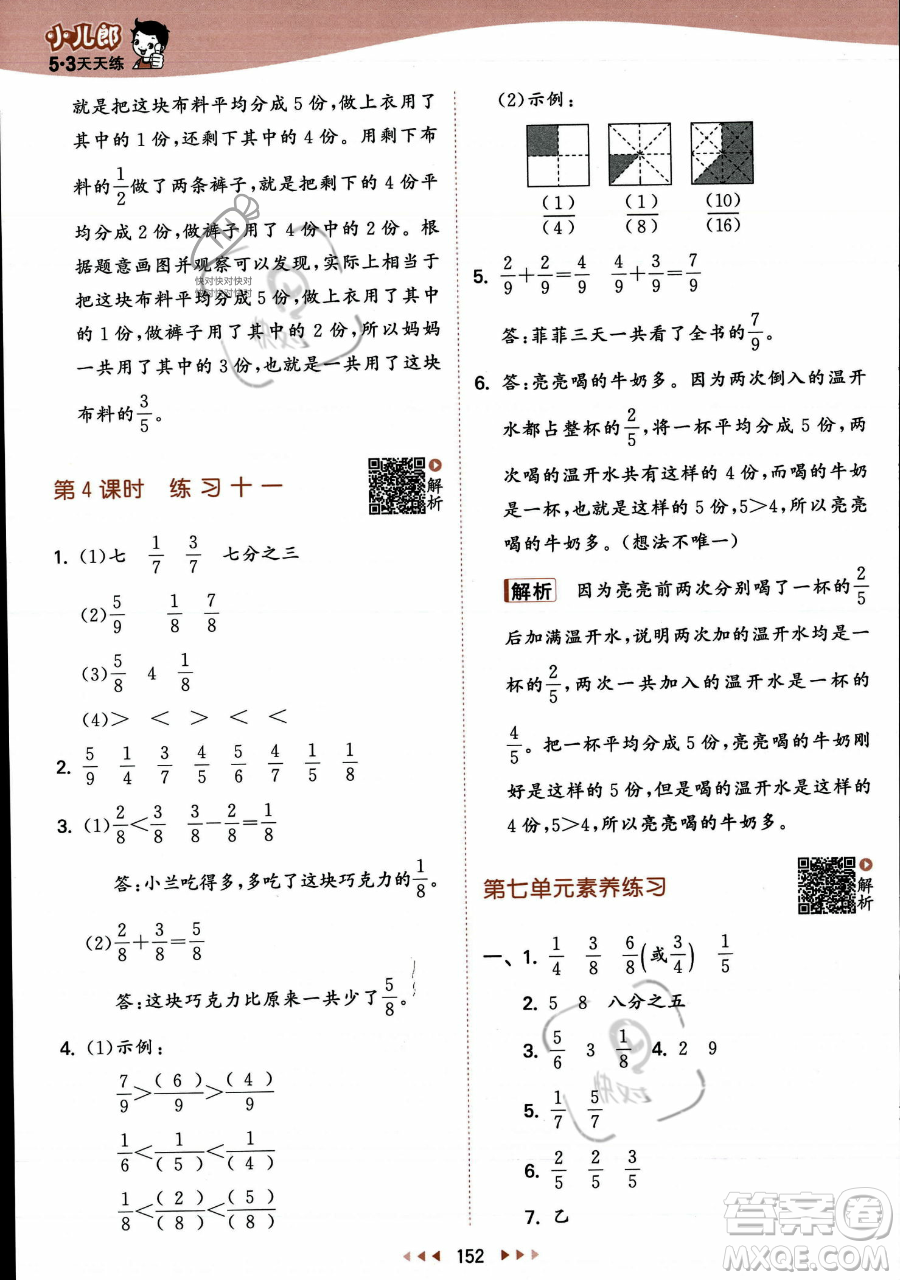 小儿郎
5·3天天练
就是把这块布料平均分成 5 份，做上衣用了
其中的 1 份，还剩下其中的 4 份。用剩下布
料的1/2做了两条裤子，就是把剩下的 4 份平
均分成 2 份，做裤子用了 4 份中的 2 份。根
据题意画图并观察可以发现，实际上相当于
把这块布料平均分成 5 份，做上衣用了其中
的 1 份，做裤子用了其中的 2 份，所以妈妈
一共用了其中的 3 份，也就是一共用了这块
布料的3/5。
第 4 课时 练习十一
解析
1. (1)七 1/7 3/7 七分之三
(2)5/9 1/8 7/8
(3)5/8 4 1/8
(4)> < > < <
2. 5/9 1/4 3/7 4/5 2/6 1/5 1/8
3. (1)2/8<3/8 3/8-2/8=1/8
答：小兰吃得多，多吃了这块巧克力的1/8。
(2)2/8+3/8=5/8
答：这块巧克力比原来一共少了5/8。
4. (1)示例：
7/9>(6)/9>(4)/9
1/6<1/(5)<1/(4)
1/8<(2)/(8)<(5)/(8)
(2)示例：
(1)/(4) (1)/(8) (10)/(16)
5. 2/9+2/9=4/9 4/9+3/9=7/9
答：菲菲三天一共看了全书的7/9。
6. 答：亮亮喝的牛奶多。因为两次倒入的温开
水都占整杯的2/5，将一杯平均分成 5 份，两
次喝的温开水是这样的 4 份，喝的牛奶
是一杯，也就是这样的 5 份，5>4，所以亮亮
喝的牛奶多。(想法不唯一)
解析 因为亮亮前两次分别喝了一杯的2/5
后加满温开水，说明两次加的温开水均是一
杯的2/5，两次一共加入的温开水是一杯的
4/5。把一杯平均分成 5 份，亮亮喝的牛奶刚
好是这样的 5 份，但是喝的温开水是这样的
4 份，5>4，所以亮亮喝的牛奶多。
第七单元素养练习
解析
一、1. 1/4 3/8 6/8(或3/4) 1/5
2. 5 8 八分之五
3. 5/6 3 1/8 4. 2 9
5. 1/7 5/7
6. 2/5 2/5 3/5
7. 乙
152
快对快对快对
快对快对快对
答案圈
MXQE.COM